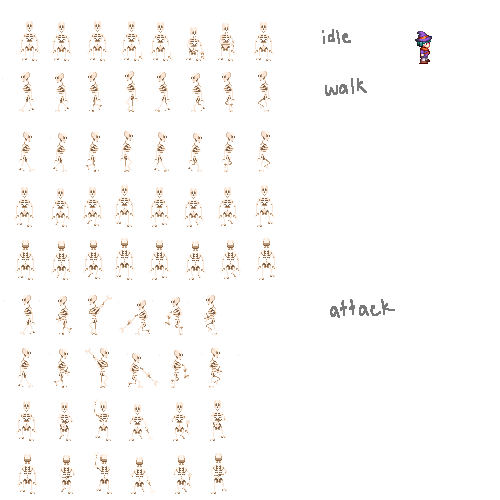 idle
walk
attack